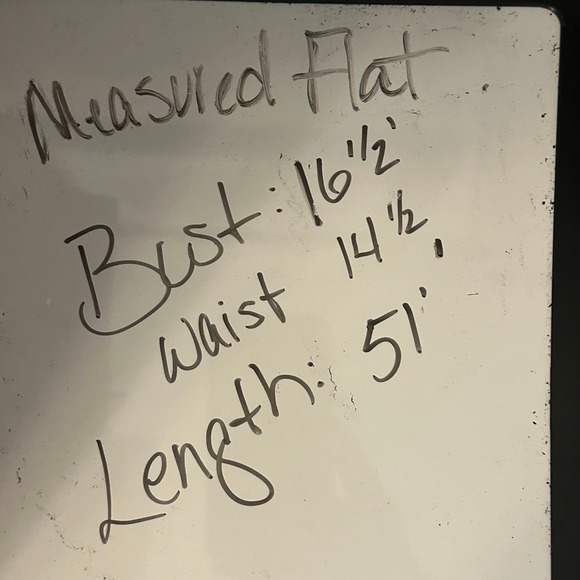 Measured Flat
Bust: 16 1/2'
waist 14 1/2
Length: 51'